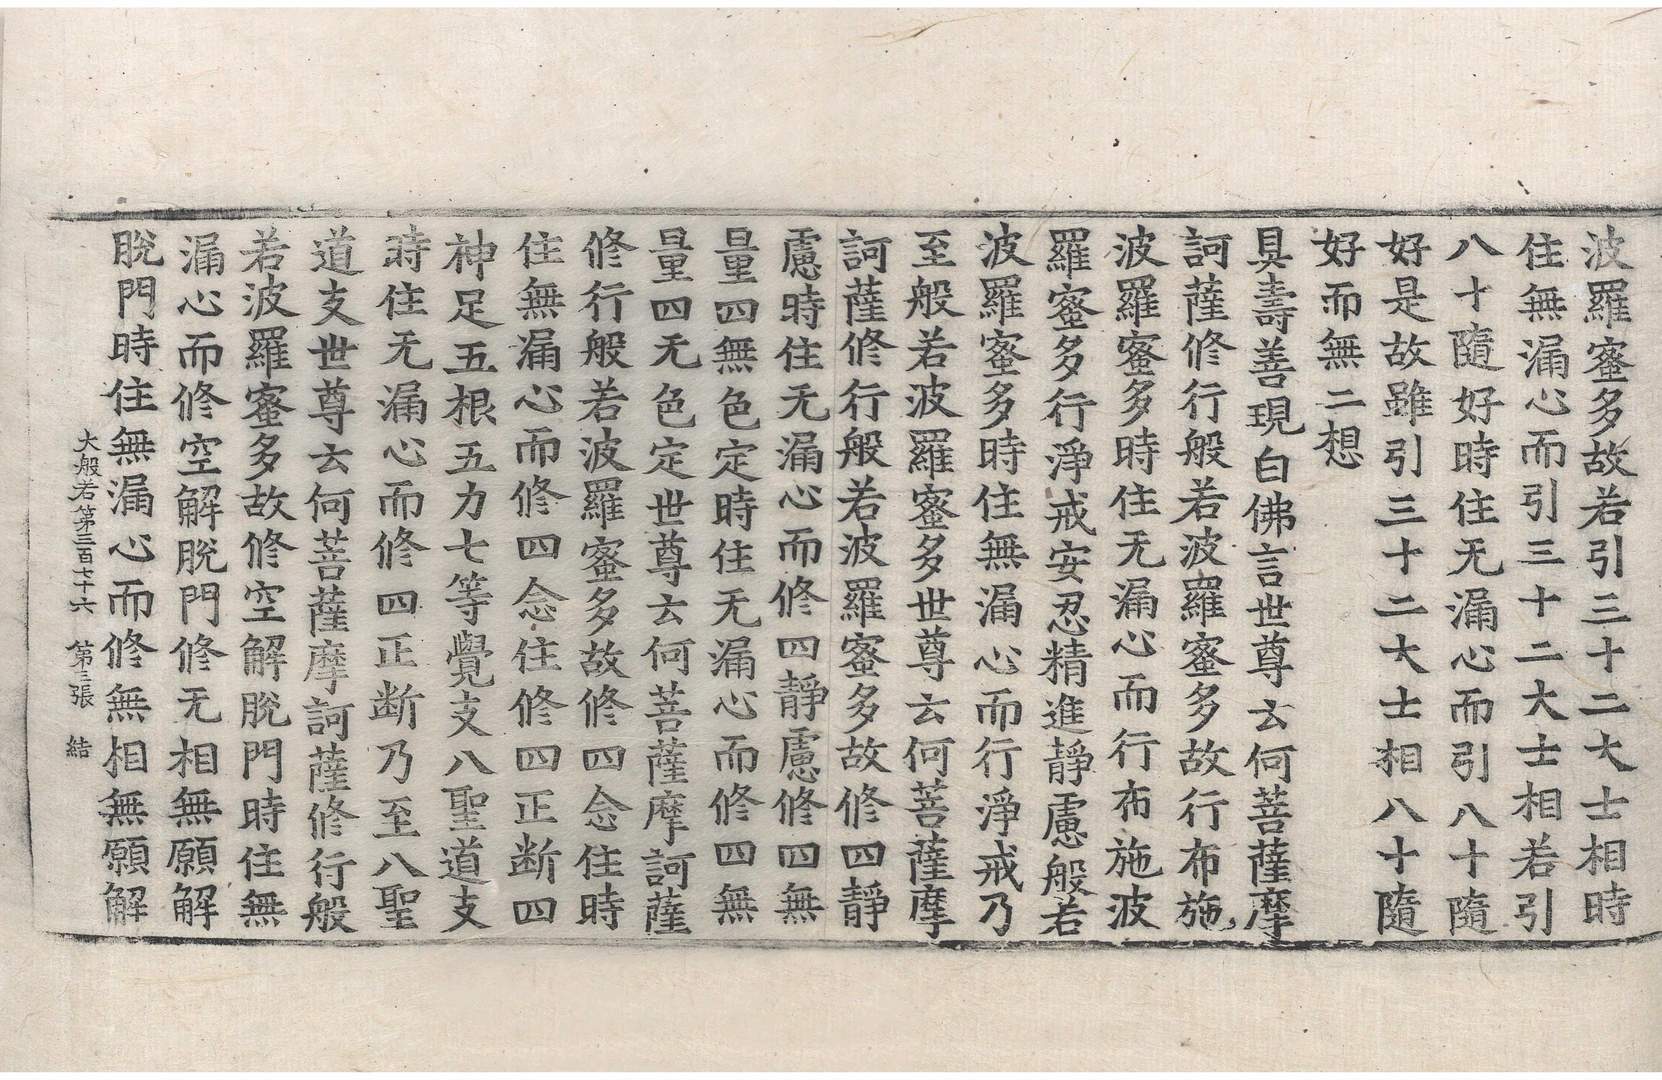 波羅蜜多故若引三十二大士相時
住無漏心而引三十二大士相若引
八十隨好時住无漏心而引八十隨
好是故雖引三十二大士相八十隨
好而無二想
具壽善現白佛言世尊云何菩薩摩
訶薩修行般若波羅蜜多故行布施
波羅蜜多時住无漏心而行布施波
羅蜜多行淨戒安忍精進靜慮般若
波羅蜜多時住無漏心而行淨戒乃
至般若波羅蜜多世尊云何菩薩摩
訶薩修行般若波羅蜜多故修四靜
慮時住无漏心而修四靜慮修四無
量四無色定時住无漏心而修四無
量四无色定世尊云何菩薩摩訶薩
修行般若波羅蜜多故修四念住時
住無漏心而修四念住修四正断四
神足五根五力七等覺支八聖道支
時住无漏心而修四正断乃至八聖
道支世尊云何菩薩摩訶薩修行般
若波羅蜜多故修空解脫門時住無
漏心而修空解脫門修无相無願解
脫門時住無漏心而修無相無願解
大般若第三百七十六 第三張 結